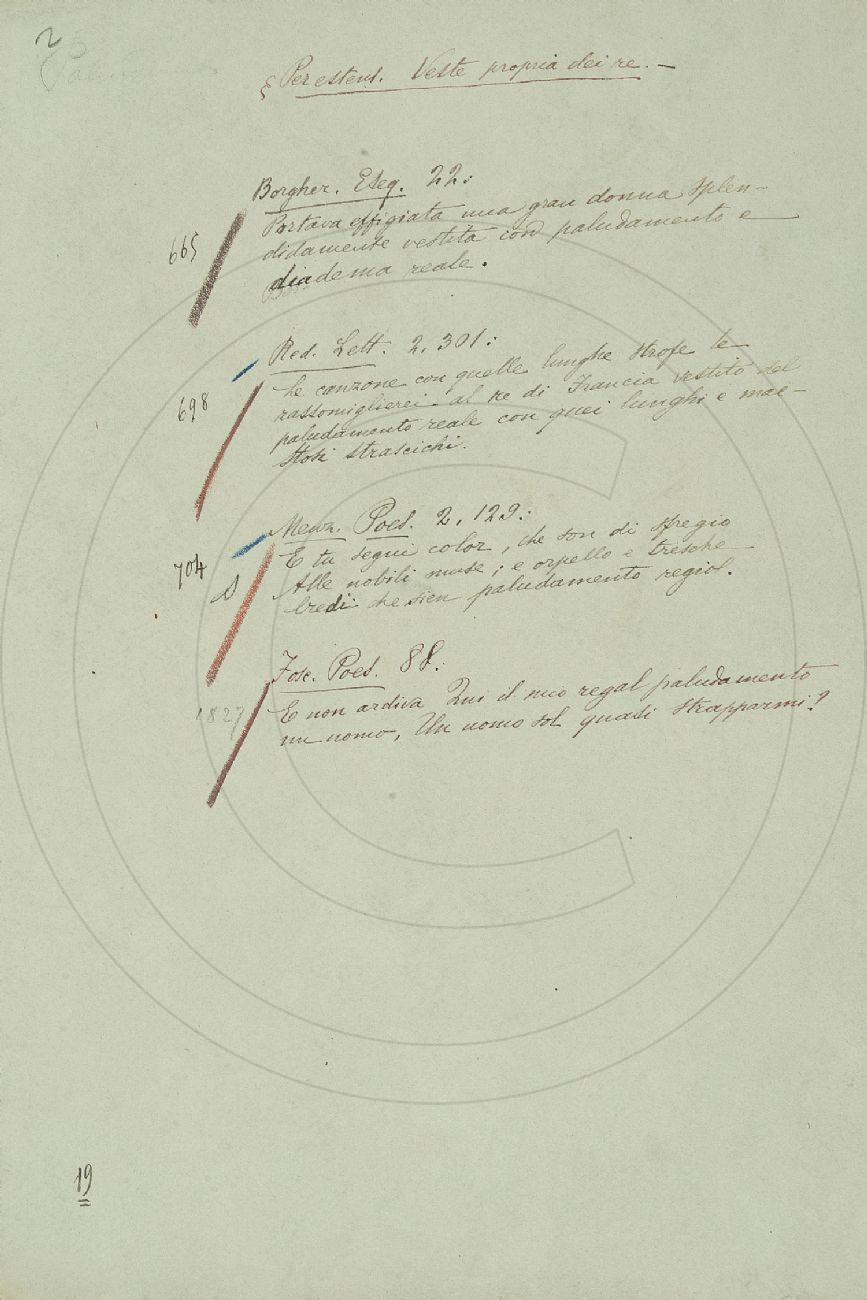 2
§ Per estens. Veste propria dei re. —
Borgher. Eseq. 22:
665
Portava effigiata una gran donna splen-
didamente vestita con paludamento e
diadema reale.
Red. Lett. 2. 301:
698
Le canzone con quelle lunghe strofe le
rassomiglierei al re di Francia vestito del
paludamento reale con quei lunghi e mae-
stosi strascichi.
Menz. Poes. 2, 129:
704
E tu segui color, che son di spregio
Alle nobili muse; e orpello e tresche
Credi che sien paludamento regio.
Fosc. Poes. 88:
1827
E non ardiva Qui il mio regal paludamento
un uomo, Un uomo sol quasi strapparmi?
19